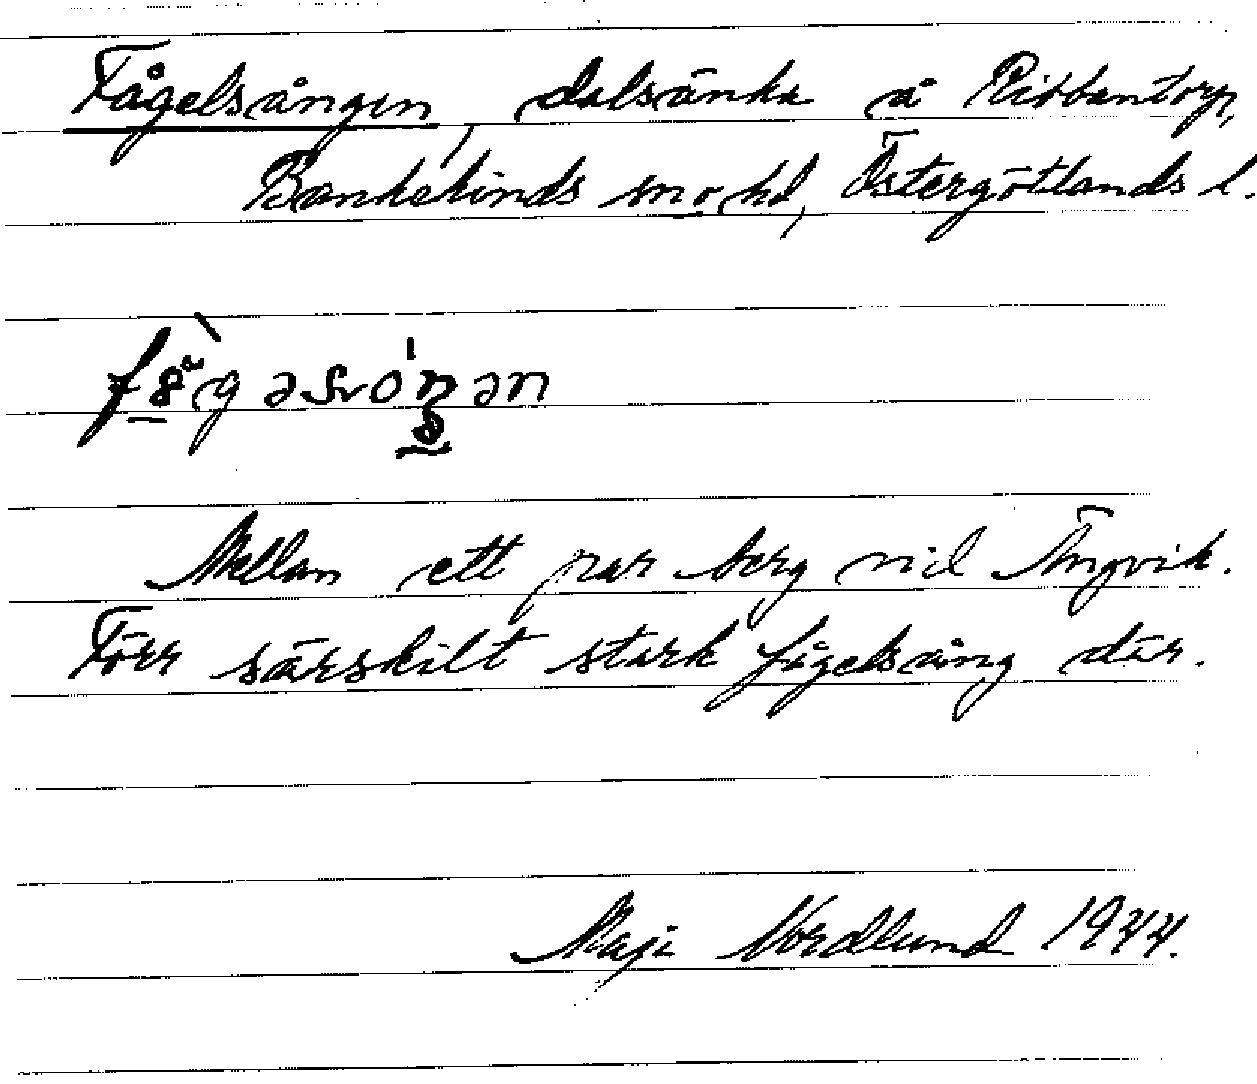 Fågelsången, dalsänka å Ribbantorp,
Bankekinds sn o hd, Östergötlands l.
Mellan ett par berg vid Ängvik.
Förr särskilt stark fågelsång där.
Maji Nordlund 1944.